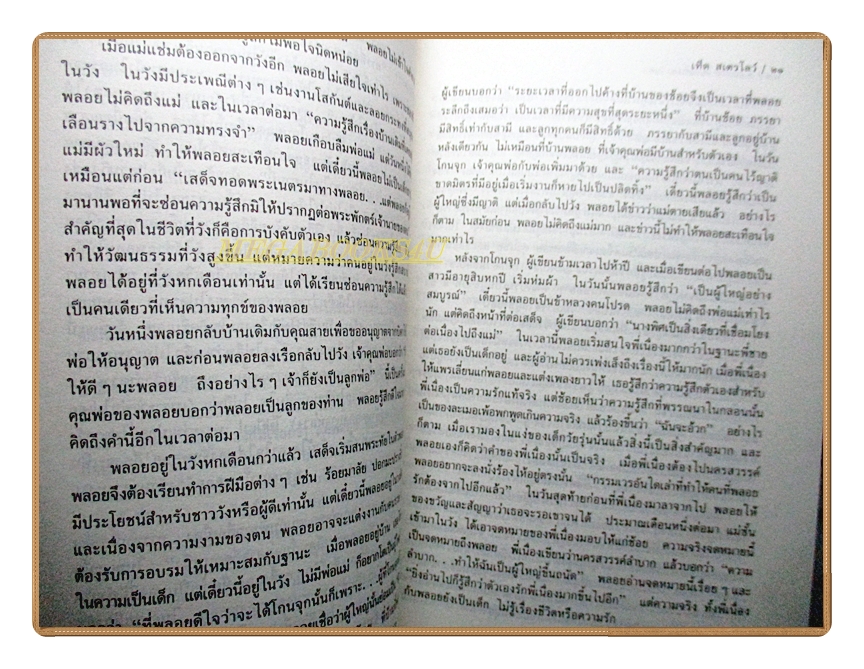 เมื่อแม่แช่มต้องออกจากวังอีก พลอยไม่เสียใจเท่าไร
ในวัง ในวังมีประเพณีต่าง ๆ เช่นงานโสกันต์และลอยกระทง
พลอยไม่คิดถึงแม่ และในเวลาต่อมา “ความรู้สึกเรื่องบ้านเดิม
เลือนรางไปจากความทรงจำ” พลอยเกือบลืมพ่อแม่ แต่วันหนึ่ง
แม่มีผัวใหม่ ทำให้พลอยสะเทือนใจ แต่เดี๋ยวนี้พลอยไม่เป็น
เหมือนแต่ก่อน “เสด็จทอดพระเนตรมาทางพลอย. . .แต่พลอย
มานานพอที่จะซ่อนความรู้สึกมิให้ปรากฏต่อพระพักตร์เจ้านาย
สำคัญที่สุดในชีวิตที่วังก็คือการบังคับตัวเอง แล้วซ่อนความรู้สึก
ทำให้วัฒนธรรมที่วังสูงขึ้น แต่หมายความว่าคนอยู่ในวังรู้สึก
พลอยได้อยู่ที่วังหกเดือนเท่านั้น แต่ได้เรียนซ่อนความรู้สึกได้แล้ว
เป็นคนเดียวที่เห็นความทุกข์ของพลอย
วันหนึ่งพลอยกลับบ้านเดิมกับคุณสายเพื่อขออนุญาต
พ่อให้อนุญาต และก่อนพลอยลงเรือกลับไปวัง เจ้าคุณพ่อบอกว่า
ให้ดี ๆ นะพลอย ถึงอย่างไร ๆ เจ้าก็ยังเป็นลูกพ่อ” นี้เป็นครั้ง
คุณพ่อของพลอยบอกว่าพลอยเป็นลูกของท่าน พลอยรู้สึก
คิดถึงคำนี้อีกในเวลาต่อมา
พลอยอยู่ในวังหกเดือนกว่าแล้ว เสด็จเริ่มสนพระทัย
พลอยจึงต้องเรียนทำการฝีมือต่าง ๆ เช่น ร้อยมาลัย ปอก
มีประโยชน์สำหรับชาววังหรือผู้ดีเท่านั้น แต่เดี๋ยวนี้พลอยอยู่
และเนื่องจากความงามของตน พลอยอาจจะแต่งงานกับ
ต้องรับการอบรมให้เหมาะสมกับฐานะ เมื่อพลอยอยู่บ้าน
ในความเป็นเด็ก แต่เดี๋ยวนี้อยู่ในวัง ไม่มีพ่อแม่ ก็อยากโตเป็น
“ที่พลอยดีใจว่าจะได้โกนจุกนั้นก็เพราะ. . .
พลอยเชื่อว่าผู้ใหญ่นั้น
เท็ด สเตรโลว์ / ๑๑
ผู้เขียนบอกว่า “ระยะเวลาที่ออกไปค้างที่บ้านของช้อยจึงเป็นเวลาที่พลอย
ระลึกถึงเสมอว่า เป็นเวลาที่มีความสุขที่สุดระยะหนึ่ง” ที่บ้านช้อย ภรรยา
มีสิทธิ์เท่ากับสามี และลูกทุกคนก็มีสิทธิ์ด้วย ภรรยากับสามีและลูกอยู่บ้าน
หลังเดียวกัน ไม่เหมือนที่บ้านพลอย ที่เจ้าคุณพ่อมีบ้านสำหรับตัวเอง ในวัน
โกนจุก เจ้าคุณพ่อกับพ่อเพิ่มมาด้วย และ “ความรู้สึกว่าตนเป็นคนไร้ญาติ
ขาดมิตรที่มีอยู่เมื่อเริ่มงานก็หายไปเป็นปลิดทิ้ง” เดี๋ยวนี้พลอยรู้สึกว่าเป็น
ผู้ใหญ่ซึ่งมีญาติ แต่เมื่อกลับไปวัง พลอยได้ข่าวว่าแม่ตายเสียแล้ว อย่างไร
ก็ตาม ในสมัยก่อน พลอยไม่คิดถึงแม่มาก และข่าวนี้ไม่ทำให้พลอยสะเทือนใจ
มากเท่าไร
หลังจากโกนจุก ผู้เขียนข้ามเวลาไปห้าปี และเมื่อเขียนต่อไปพลอยเป็น
สาวมีอายุสิบหกปี เริ่มห่มผ้า ในวันนั้นพลอยรู้สึกว่า “เป็นผู้ใหญ่อย่าง
สมบูรณ์” เดี๋ยวนี้พลอยเป็นข้าหลวงคนโปรด พลอยไม่คิดถึงพ่อแม่เท่าไร
นัก แต่คิดถึงหน้าที่ต่อเสด็จ ผู้เขียนบอกว่า “นางพิศเป็นสิ่งเดียวที่เชื่อมโยง
ต่อเนื่องไปถึงแม่” ในเวลานี้พลอยเริ่มสนใจพี่เนื่องมากกว่าในฐานะพี่ชาย
แต่เธอยังเป็นเด็กอยู่ และผู้อ่านไม่ควรเพ่งเล็งถึงเรื่องนี้ให้มากนัก เมื่อพี่เนื่อง
ให้แพรเลี่ยนแก่พลอยและแต่งเพลงยาวให้ เธอรู้สึกว่าความรู้สึกตัวเองสำหรับ
พี่เนื่องเป็นความรักแท้จริง แต่ช้อยเห็นว่าความรู้สึกที่พรรณนาในกลอนนั้น
เป็นของละเมอเพ้อพกพูดเกินความจริง แล้วร้องขึ้นว่า “ฉันจะอ้วก” อย่างไร
ก็ตาม เมื่อเรามองในแง่ของเด็กวัยรุ่นนั้นแล้วสิ่งนี้เป็นสิ่งสำคัญมาก และ
พลอยเองก็คิดว่าคำของพี่เนื่องนั้นเป็นจริง เมื่อพี่เนื่องต้องไปนครสวรรค์
พลอยอยากจะลงนั่งร้องไห้อยู่ตรงนั้น “กรรมเวรอันใดเล่าที่ทำให้คนที่พลอย
รักต้องจากไปอีกแล้ว” ในวันสุดท้ายก่อนที่พี่เนื่องมาลาจากไป พลอยให้
ของขวัญและสัญญาว่าเธอจะรอเขาจนได้ ประมาณเดือนหนึ่งต่อมา แม่ชั้น
เข้ามาในวัง ได้เอาจดหมายของพี่เนื่องมอบให้แก่ช้อย ความจริงจดหมายนี้
เป็นจดหมายถึงพลอย พี่เนื่องเขียนว่านครสวรรค์ลำบาก แล้วบอกว่า “ความ
ลำบาก. . .ทำให้ฉันเป็นผู้ใหญ่ขึ้นถนัด” พลอยอ่านจดหมายนี้เรื่อย ๆ และ
“ยิ่งอ่านไปก็รู้สึกว่าตัวเองรักพี่เนื่องมากขึ้นไปอีก” แต่ความจริง ทั้งพี่เนื่อง
กับพลอยยังเป็นเด็ก ไม่รู้เรื่องชีวิตหรือความรัก